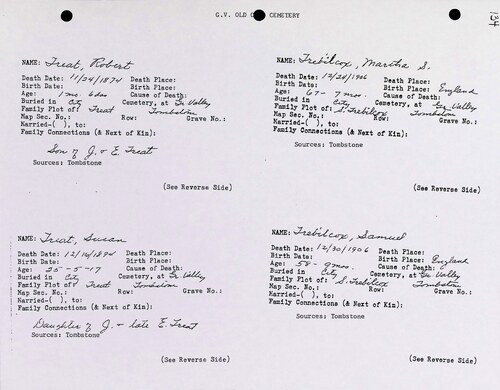 G.V. OLD CITY CEMETERY
134
NAME: Treat, Robert
Death Date: 11/24/1874 Death Place:
Birth Date: Birth Place:
Age: 1 mo. 6 das Cause of Death:
Buried in City Cemetery, at Gr. Valley
Family Plot of: Treat Tombston
Map Sec. No.: Row: Grave No.:
Married-( ), to:
Family Connections (& Next of Kin):
Son of J. & E. Treat
Sources: Tombstone
(See Reverse Side)
NAME: Trebilcox, Martha S.
Death Date: 12/24/1906 Death Place:
Birth Date: Birth Place: England
Age: 67 - 7 mos. Cause of Death:
Buried in City Cemetery, at Gr. Valley
Family Plot of: S. Trebilcox Tombston
Map Sec. No.: Row: Grave No.:
Married-( ), to:
Family Connections (& Next of Kin):
Sources: Tombstone
(See Reverse Side)
NAME: Treat, Susan
Death Date: 12/16/1894 Death Place:
Birth Date: Birth Place:
Age: 25-5-17 Cause of Death:
Buried in City Cemetery, at Gr. Valley
Family Plot of: Treat Tombston
Map Sec. No.: Row: Grave No.:
Married-( ), to:
Family Connections (& Next of Kin):
Daughter of J. & late E. Treat
Sources: Tombstone
(See Reverse Side)
NAME: Trebilcox, Samuel
Death Date: 12/30/1906 Death Place:
Birth Date: Birth Place: England
Age: 58 - 9 mos. Cause of Death:
Buried in City Cemetery, at Gr. Valley
Family Plot of: S. Trebilcox Tombston
Map Sec. No.: Row: Grave No.:
Married-( ), to:
Family Connections (& Next of Kin):
Sources: Tombstone
(See Reverse Side)